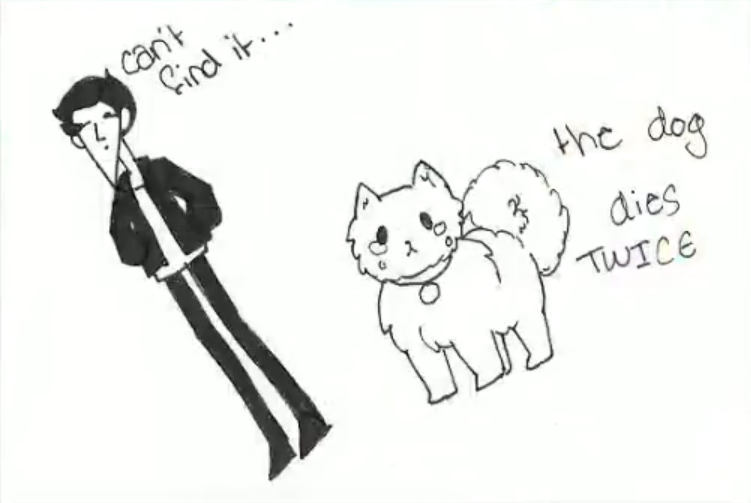 can't
find it...
the dog
dies
TWICE